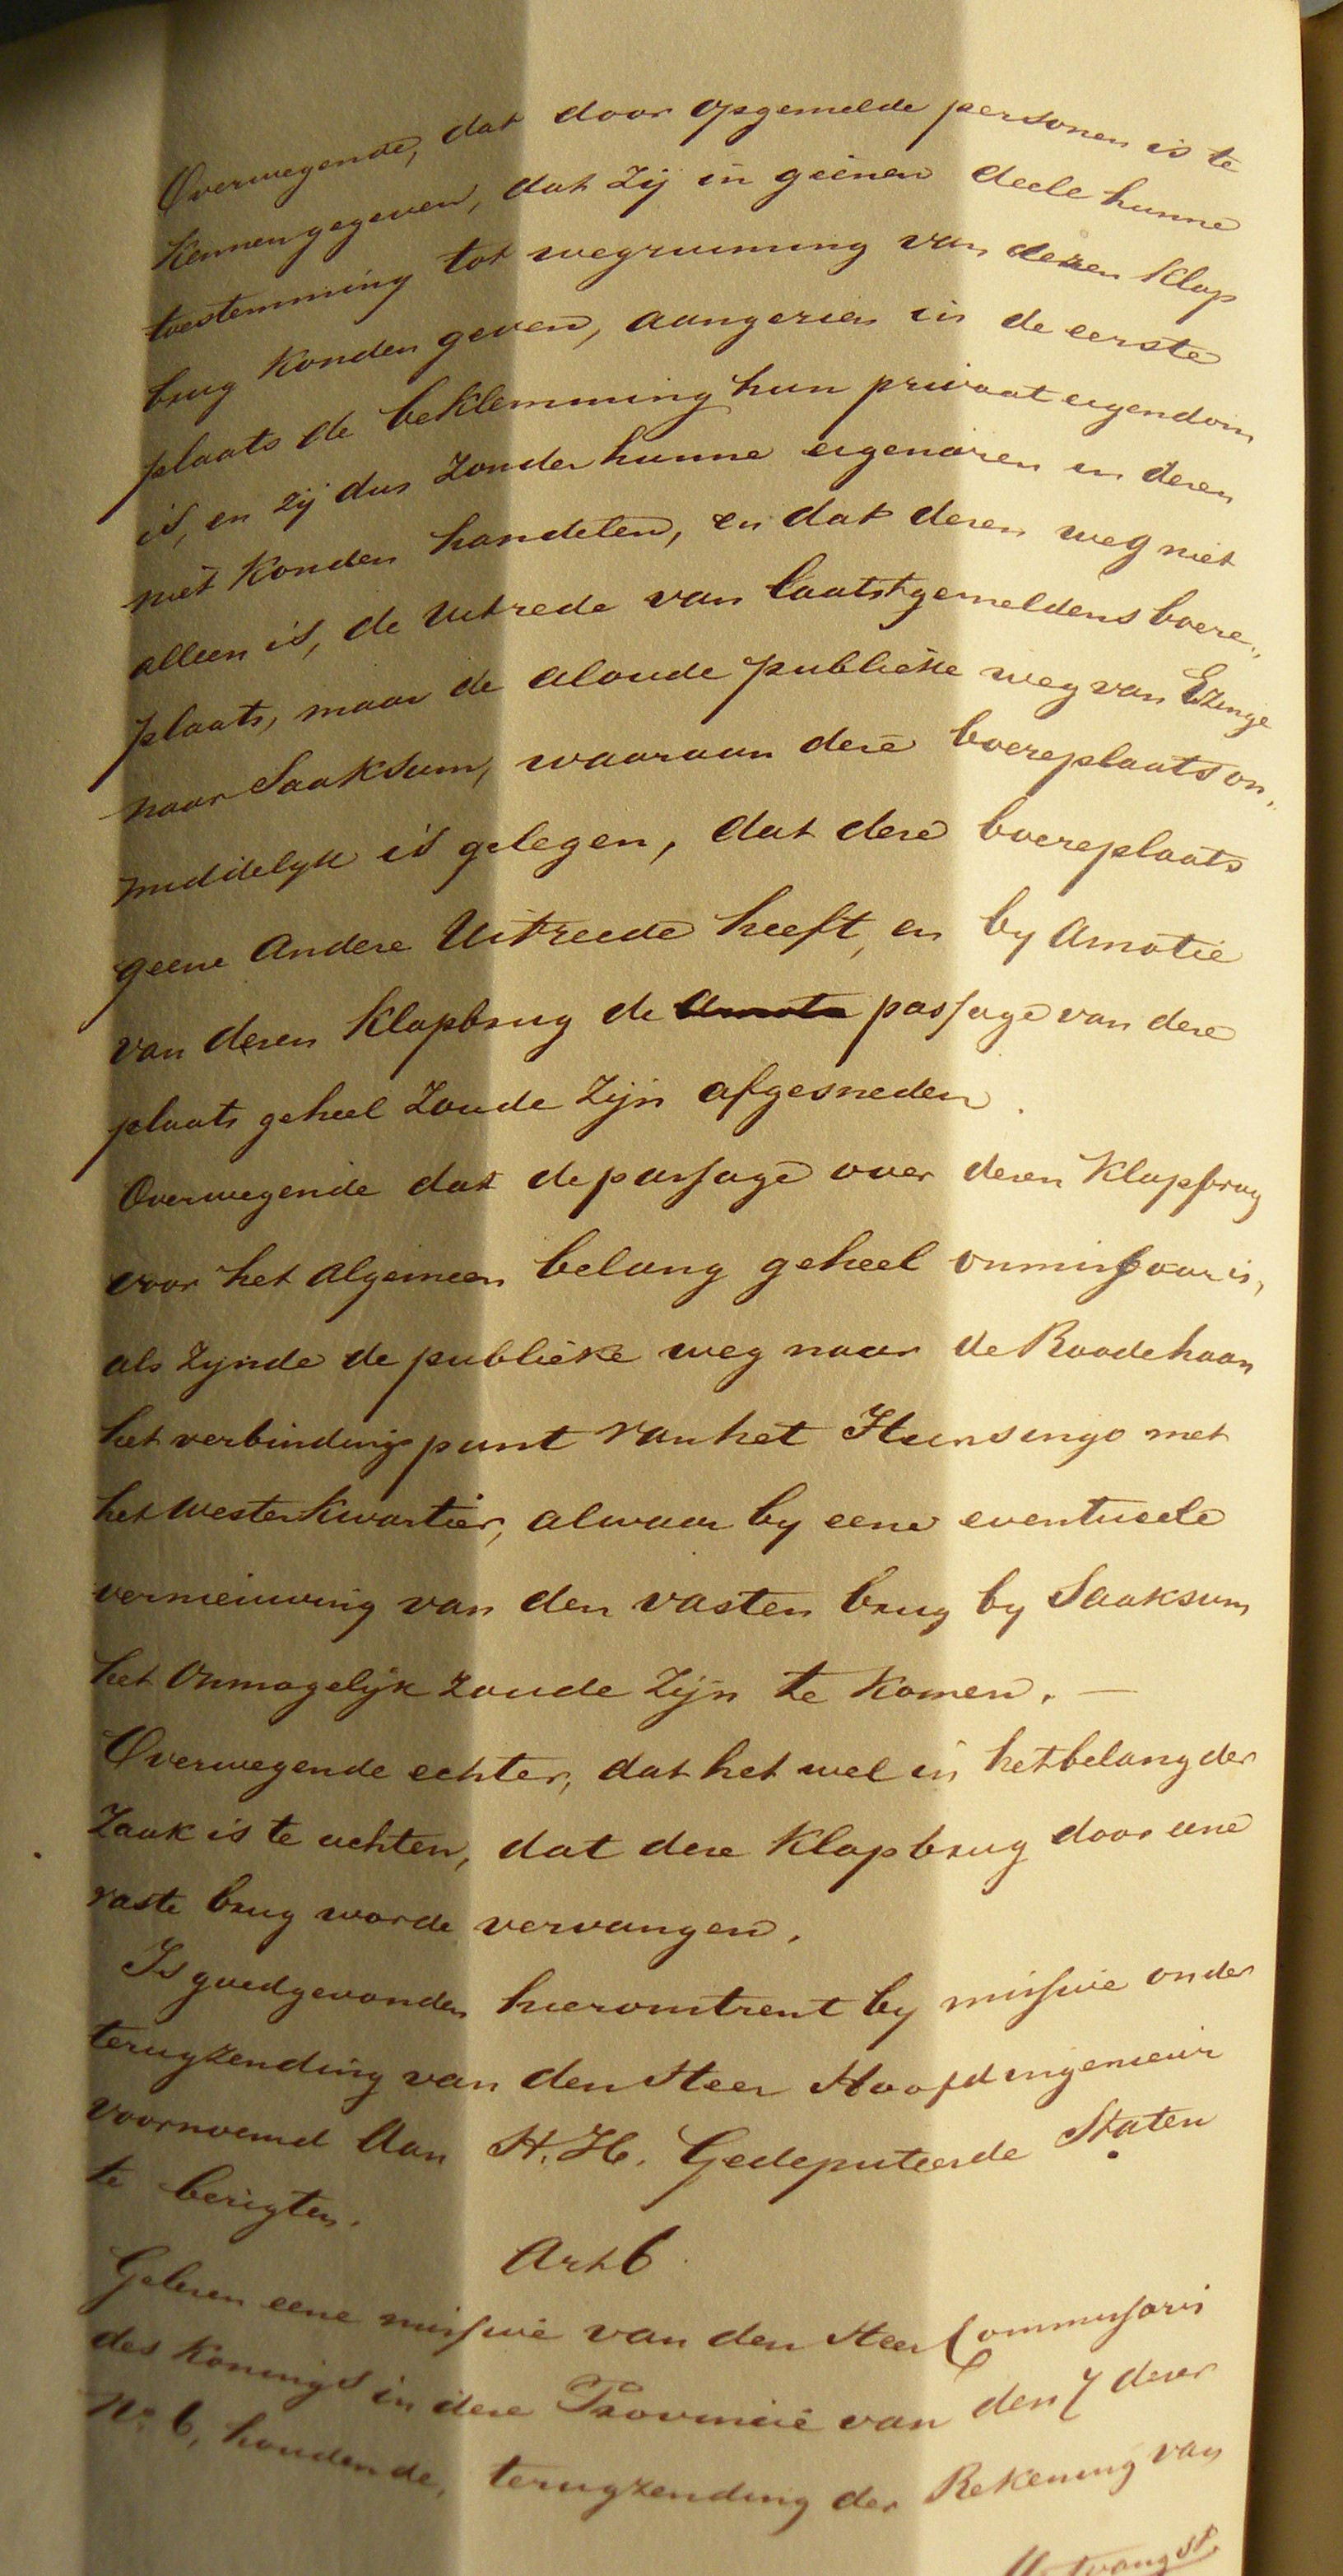 Overwegende, dat door opgemelde personen is te
kennen gegeven, dat zij in geenen deele hunne
toestemming tot wegruiming van dezen klap
brug konden geven, aangezien in de eerste
plaats de beklemming hun privaat eigendom
is, en zij dus zonder hunne eigenaren in dezen
niet konden handelen, en dat dezen weg niet
alleen is, de uitrede van laatstgemeldens boere„
plaats, maar de aloude publieke weg van Ezinge
naar Saaksum, waaraan deze boereplaats on„
middelyk is gelegen, dat deze boereplaats
geene andere Uitreede heeft, en by amotie
van dezen klapbrug de passage van deze
plaats geheel zoude zijn afgesneden.
Overwegende dat de passage over dezen klapbrug
voor het algemeen belang geheel onmisbaar is,
als zynde de publieke weg naar de Roodehaan
het verbindings punt van het Hunsingo met
het westerkwartier, alwaar by eene eventueele
vernieuwing van den vasten brug by Saaksum
het onmogelijk zoude zijn te komen. —
Overwegende echter, dat het wel in het belang der
zaak is te achten, dat deze klapbrug door eene
vaste brug worde vervangen.
Is goedgevonden hieromtrent by missive onder
terugzending van den Heer Hoofdingenieur
voornoemd aan H. H. Gedeputeerde Staten
te berigten.
Art 6
Gelezen eene missive van den Heer Commissaris
des Konings in deze Provincie van den 7 dezer
No 6, houdende, terugzending der Rekening van